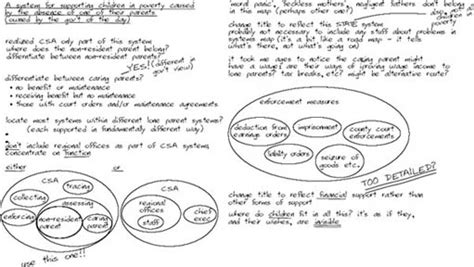 A system for supporting children in poverty caused
by the absence of one of their parents
(owned by the gov't of the day)
realized CSA only part of this system
where does the non-resident parent belong?
differentiate between non-resident parents?
YES!! (different in
gov't view)
differentiate between caring parents?
• no benefit or maintenance
• receiving benefit but no maintenance
• those with court orders and/or maintenance agreements
locate most systems within different lone parent systems?
(each supported in fundamentally different way)
Don't include regional offices as part of CSA systems
concentrate on function
either
or
CSA
tracing
collecting
assessing
enforcing
non-resident
parent
caring
parent
use this one!!
CSA
regional
offices
staff
chief
exec
'moral panic', 'feckless mothers', negligent fathers don't belong
in this map
change title to reflect this STATE system
probably not necessary to include any stuff about problems in
systems map (it's a bit like a road map - it tells
what's there, not what's going on)
it took me ages to notice the caring parent might
have a wage! are their ways of growing wage income to
lone parents? tax breaks, etc? might be 'alternative route?
enforcement measures
deduction from
earnings orders
imprisonment
county court
enforcements
liability orders
seizure of
goods etc.
TOO DETAILED?
change title to reflect financial support rather than
other forms of support
where do children fit in all this? it's as if they,
and their wishes, are invisible